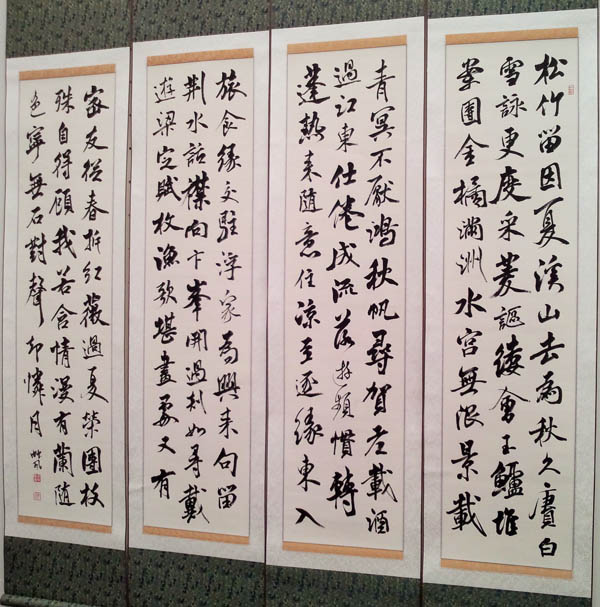 松竹留因夏溪山去為秋久賡白
雪詠更度采菱謳縷會玉鱸堆
案團金橘滿洲水宮無限景載
青冥不厭鴻秋帆尋賀老載酒
過江東仕倦成流落遊頻慣轉
蓬熱來隨意住涼至逐緣東入
旅食緣交駐浮家為興來句留
荊水話襟向卞峯開過剡如尋戴
遊梁定賦枚漁歌堪畫處又有
密友從春拆紅薇過夏榮團枝
殊自得顧我若含情漫有蘭隨
色寧無石對聲却憐月